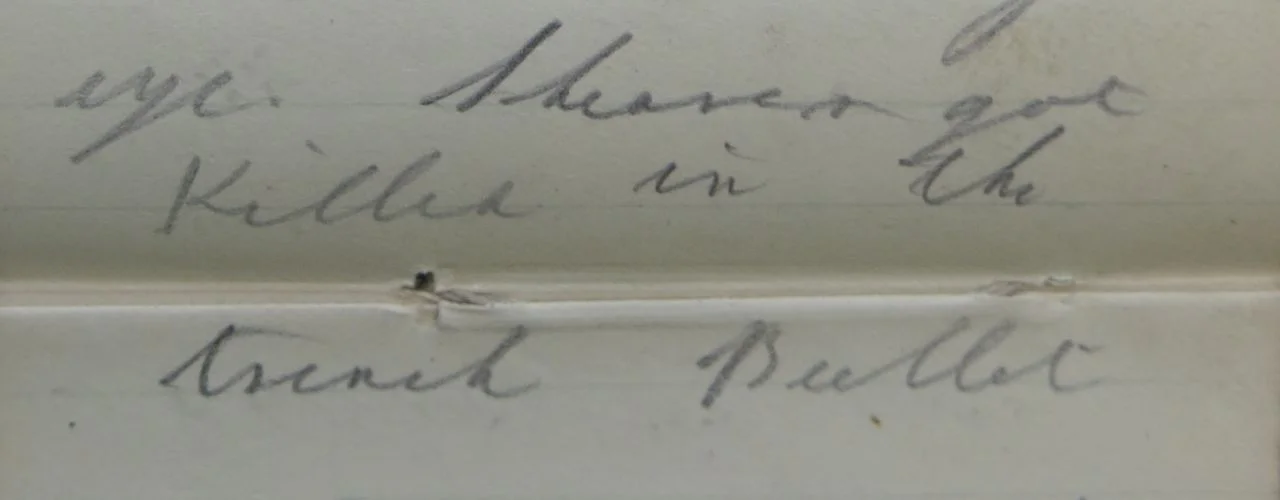 eye. Shearer got
Killed in the
trench Bullet